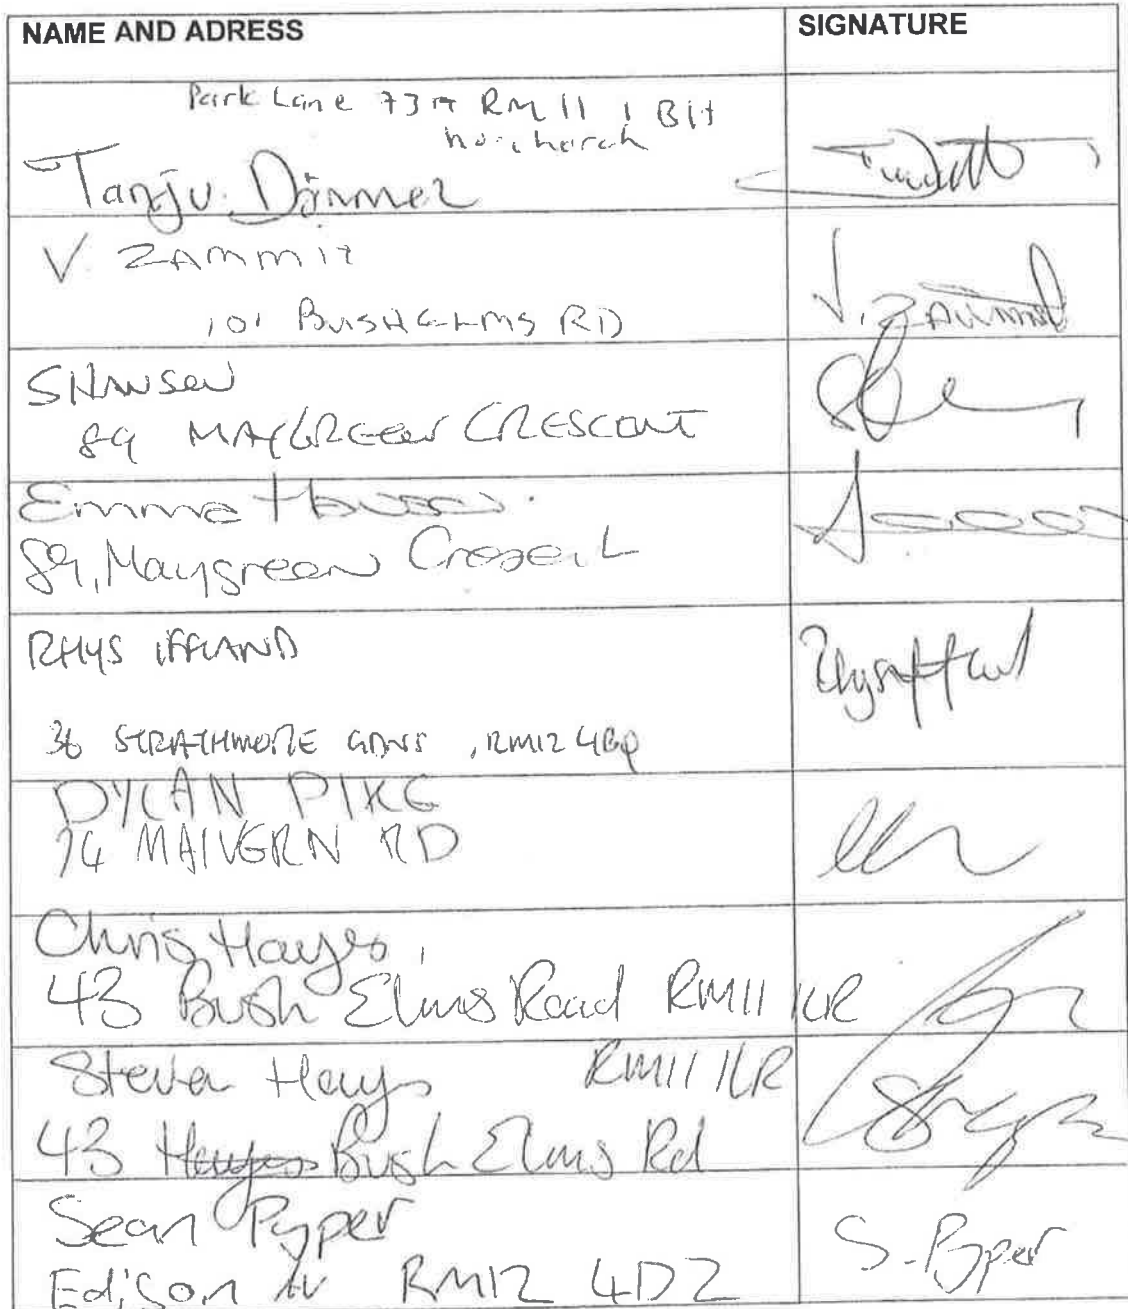 NAME AND ADRESS
SIGNATURE
Park Lane 73A RM11 1BH
Hornchurch
Tanju Dönmez
V. ZAMMIT
101 BUSH ELMS RD
V. ZAMMIT
S HANSEN
89 MAYGREEN CRESCENT
Emma
89, Maygreen Cresent
RHYS IFFLAND
36 STRATHMORE GDNS, RM12 4BQ
DYLAN PIKE
74 MALVERN RD
Chris Hayes,
43 Bush Elms Road RM11 1LR
Steven Hays RM11 1LR
43 Hayes Bush Elms Rd
Sean Pyper
S-Pyper
Edison Av RM12 4DZ